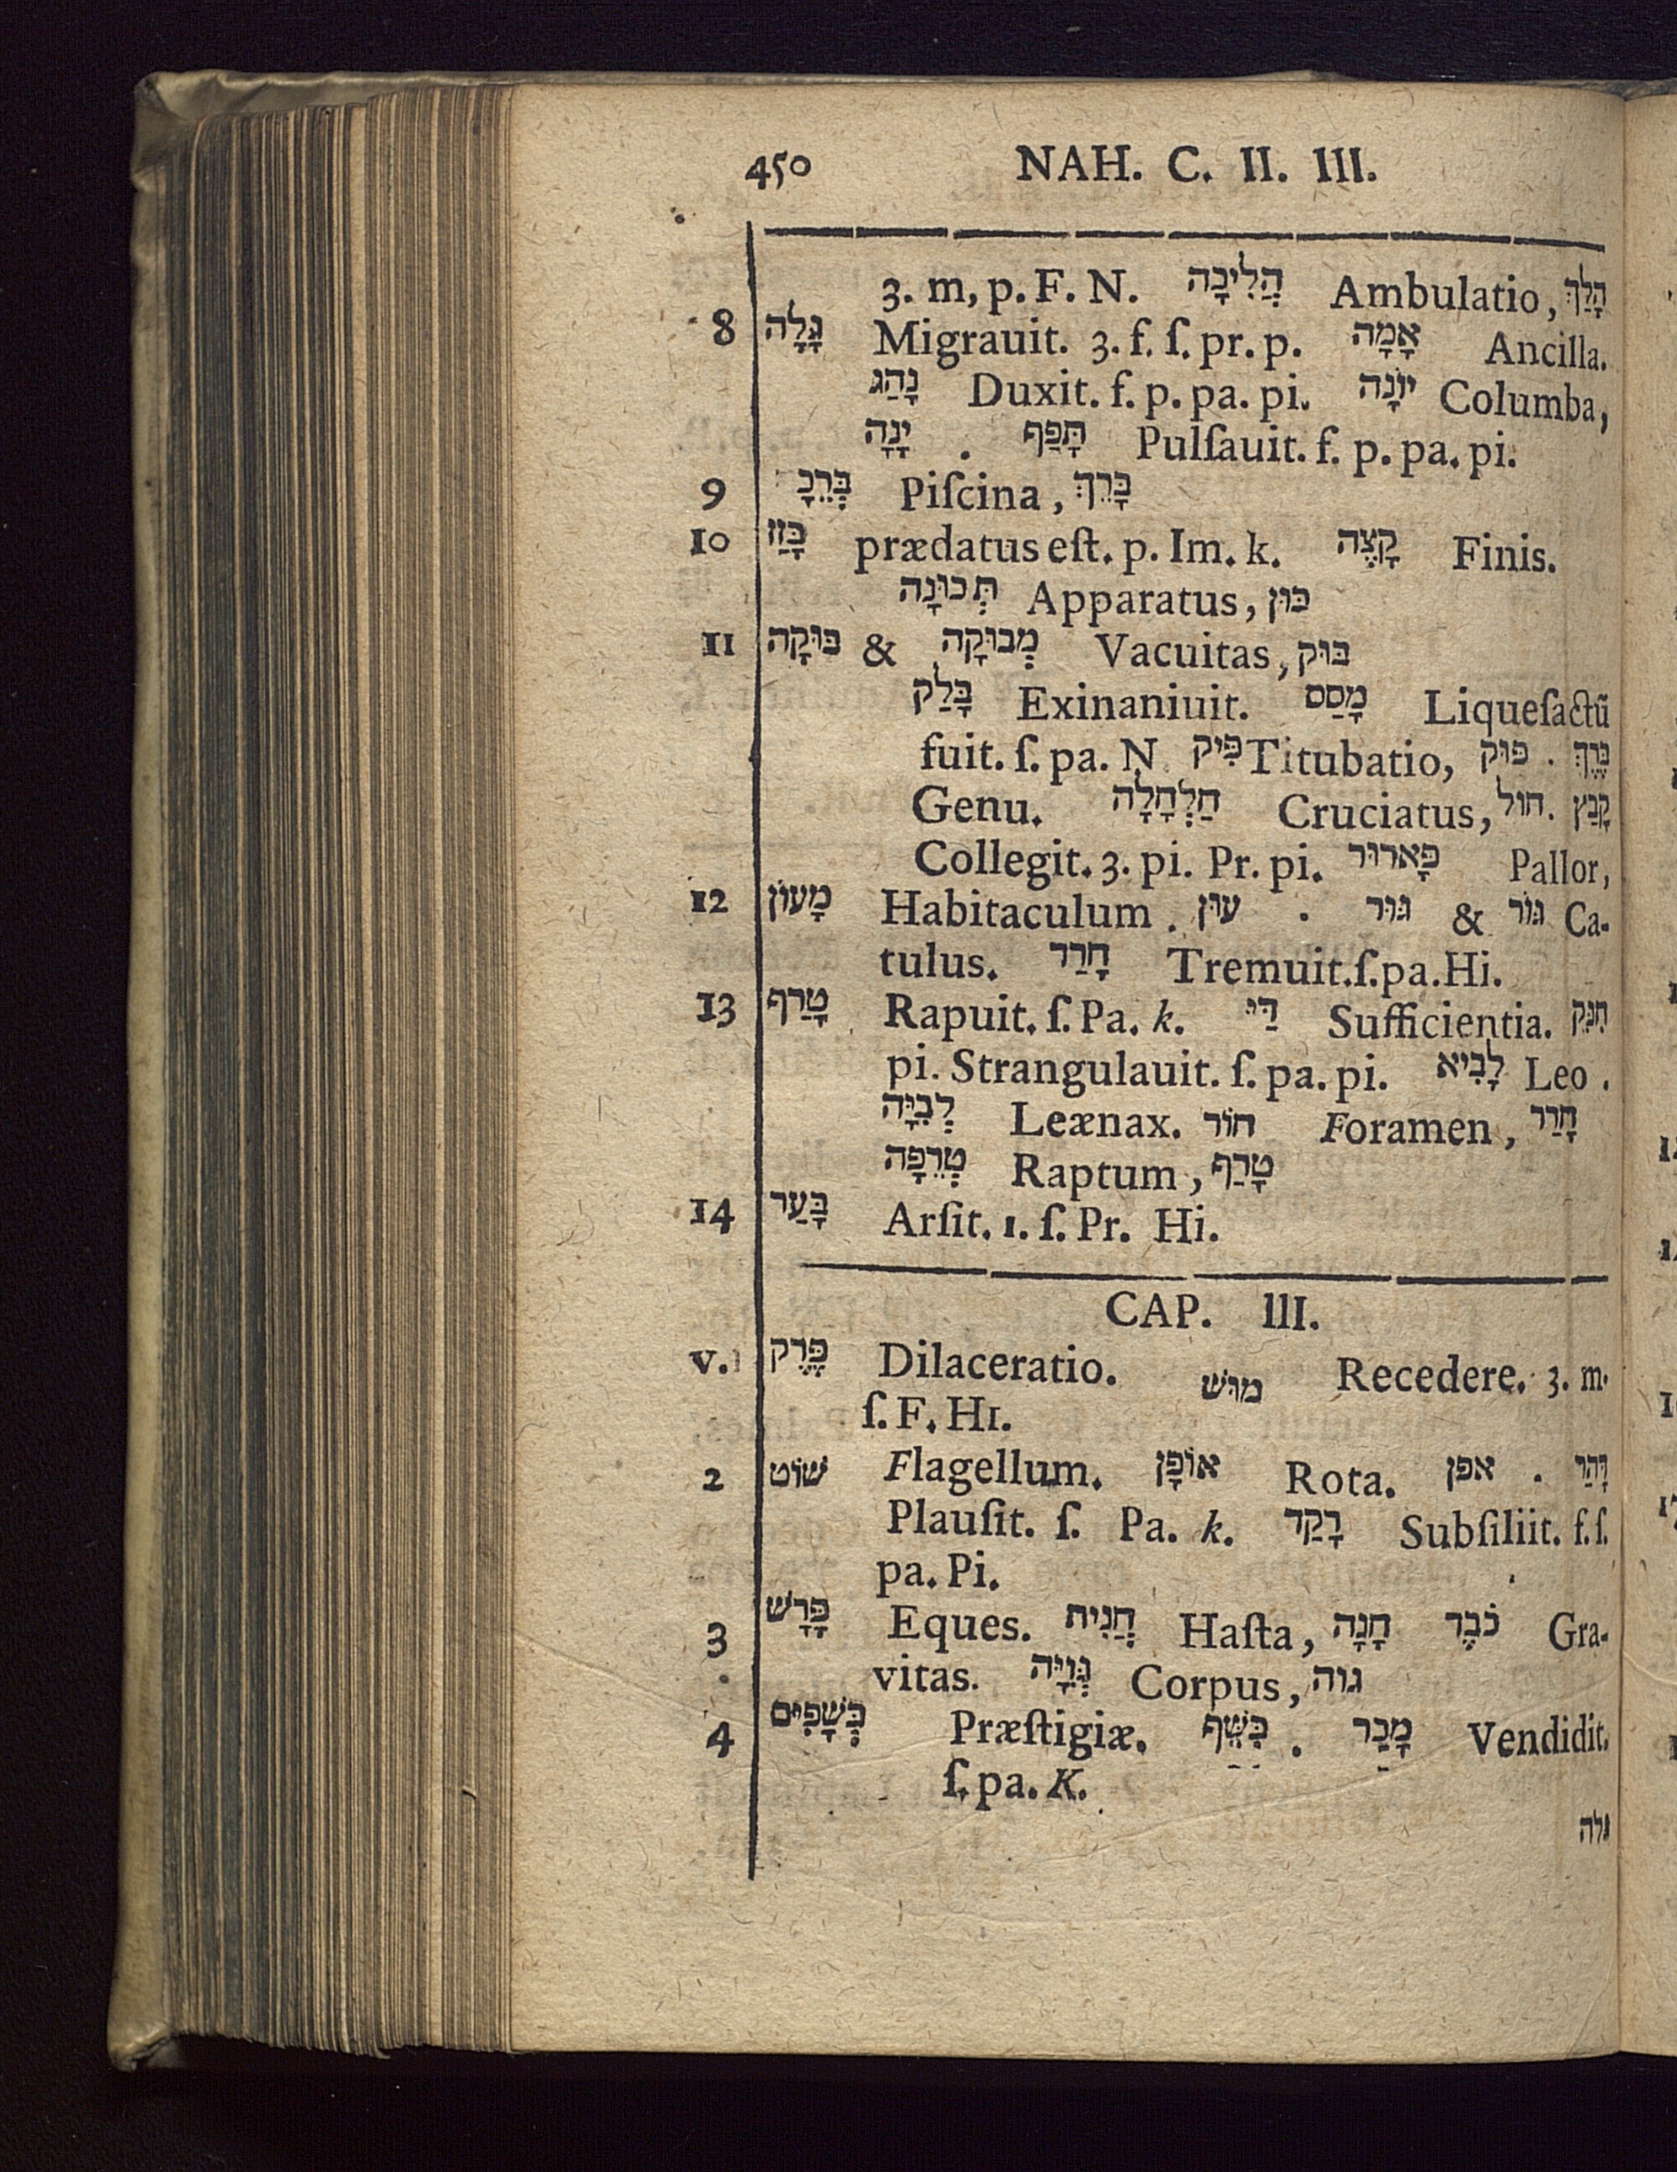 450 NAH. C. II. III.
3. m, p. F. N. הֲלִיכָה Ambulatio, הָלַךְ
8 גָּלָה Migrauit. 3. f. ſ. pr. p. אָמָה Ancilla.
נָהַג Duxit. f. p. pa. pi. יוֹנָה Columba,
יָנָה . תָּפַף Pulſauit. f. p. pa. pi.
9 בְּרֵכָ Piſcina, בָּרַךְ
10 בָּזַז prædatus eſt. p. Im. k. קָצֶה Finis.
תְּכוּנָה Apparatus, כּוּן
11 בּוּקָה & מְבוּקָה Vacuitas, בּוּק
בָּלַק Exinaniuit. מָסַס Liquefactũ
fuit. ſ. pa. N פִּיק Titubatio, פּוּק . בֶּרֶךְ
Genu. חַלְחָלָה Cruciatus, חול. קָבַץ
Collegit. 3. pi. Pr. pi. פָּארוּר Pallor,
12 מָעוֹן Habitaculum. עוּן . גּוּר & גּוֹר Ca-
tulus. חָרַד Tremuit. ſ. pa. Hi.
13 טָרַף Rapuit. ſ. Pa. k. דַּי Sufficientia. חִנֵּק
pi. Strangulauit. ſ. pa. pi. לָבִיא Leo .
לְבִיָּה Leænax. חוֹר Foramen, חָרַר
טְרֵפָה Raptum, טָרַף
14 בָּעַר Arſit. 1. ſ. Pr. Hi.
CAP. III.
v. פֶּרֶק Dilaceratio. מוּשׁ Recedere. 3. m.
ſ. F. HI.
2 שׁוֹט Flagellum. אוֹפָן Rota. אפן . דָּהַר
Plauſit. ſ. Pa. k. רָקַד Subſiliit. f. ſ.
pa. Pi.
3 פָּרָשׁ Eques. חֲנִית Haſta, חָנָה כֹּבֶד Gra-
vitas. גְּוִיָּה Corpus, גוה
4 כְּשָׁפִים Præſtigiæ. כִּשֵּׁף . מָכַר Vendidit.
ſ. pa. K.
גלה